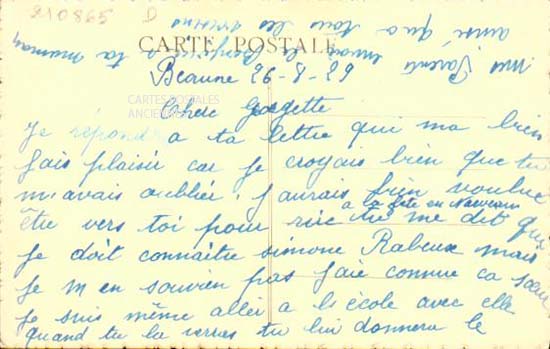 210865 D
mes Parents envoi le Bonjour a ta maman
ainsi qu'a tous les voisins
CARTE POSTALE
Beaune 26-8-29
CARTES POSTALES
ANCIENNES
Chere Georgette
Je répondre a ta lettre qui ma bien
fais plaisir car je croyais bien que tu
m'avais oubliée j'aurais bien voulue
être vers toi pour rire a la fête en
tu me dit que
je doit connaître simone Rabeux mais
je m en souvien pas j'aie connue ca soeur
je suis même aller a l école avec elle
quand tu la verras tu lui donnera le